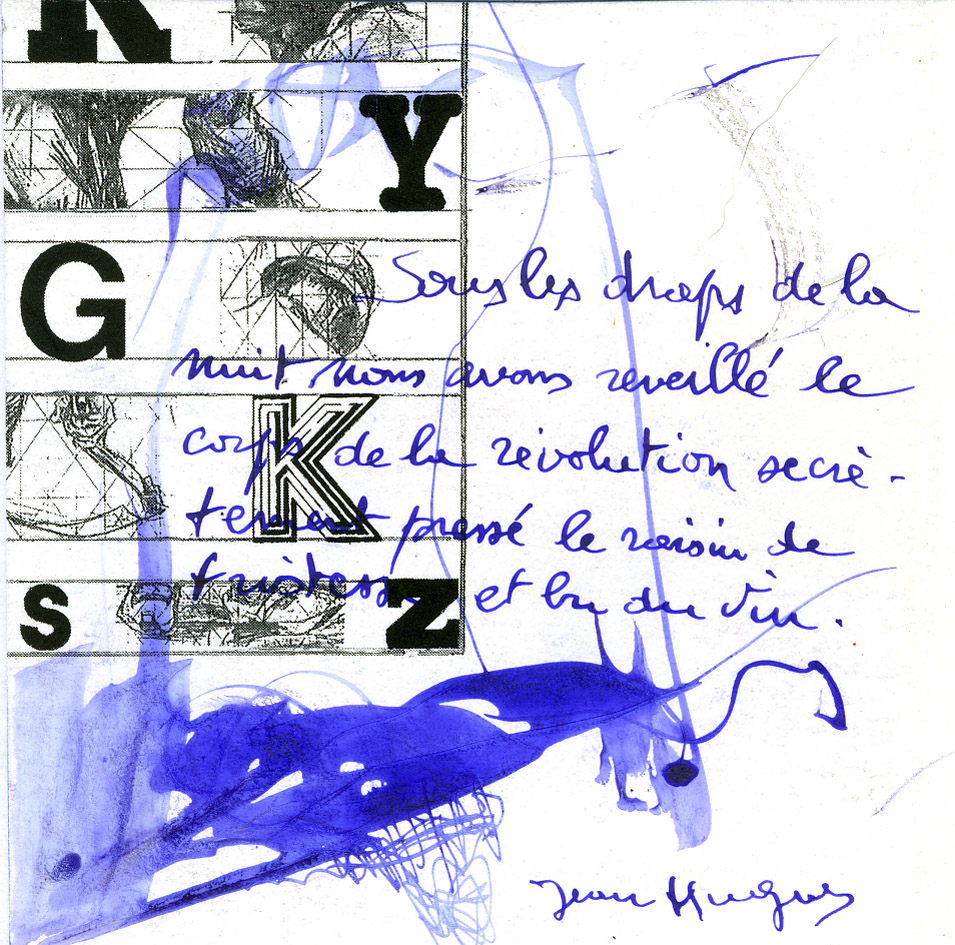 R
Y
G
Sous les draps de la
nuit nous avons reveillé le
K
corps de la révolution secrè-
tement pressé le raisin de
tristesse et bu du vin.
S Z
Jean Hugues